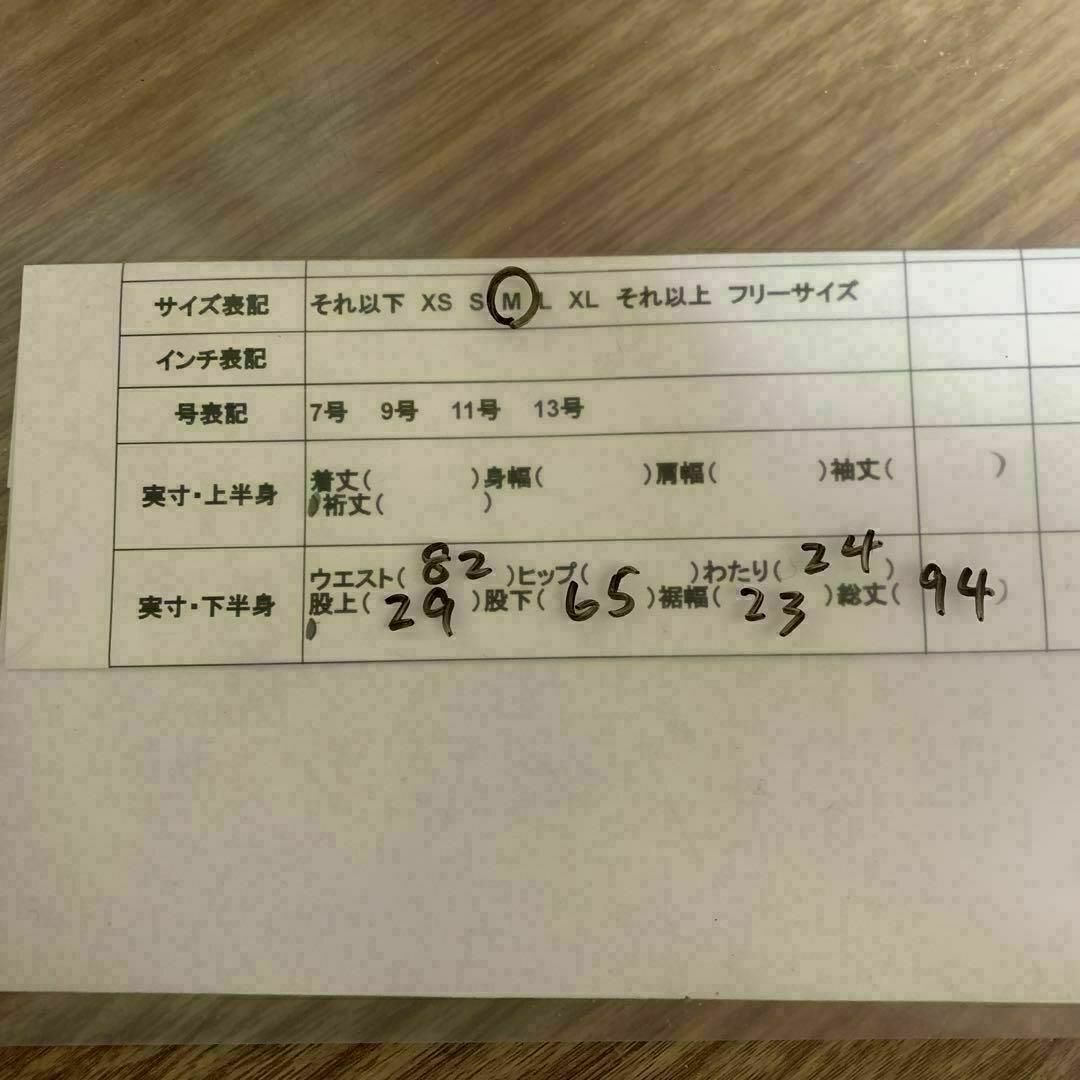 サイズ表記 それ以下 XS S M L XL それ以上 フリーサイズ
インチ表記
号表記 7号 9号 11号 13号
実寸・上半身 着丈( )身幅( )肩幅( )袖丈( )
)裄丈( )
ウエスト( 82 )ヒップ( )わたり( 24 )
実寸・下半身 股上( 29 )股下( 65 )裾幅( 23 )総丈( 94 )
)